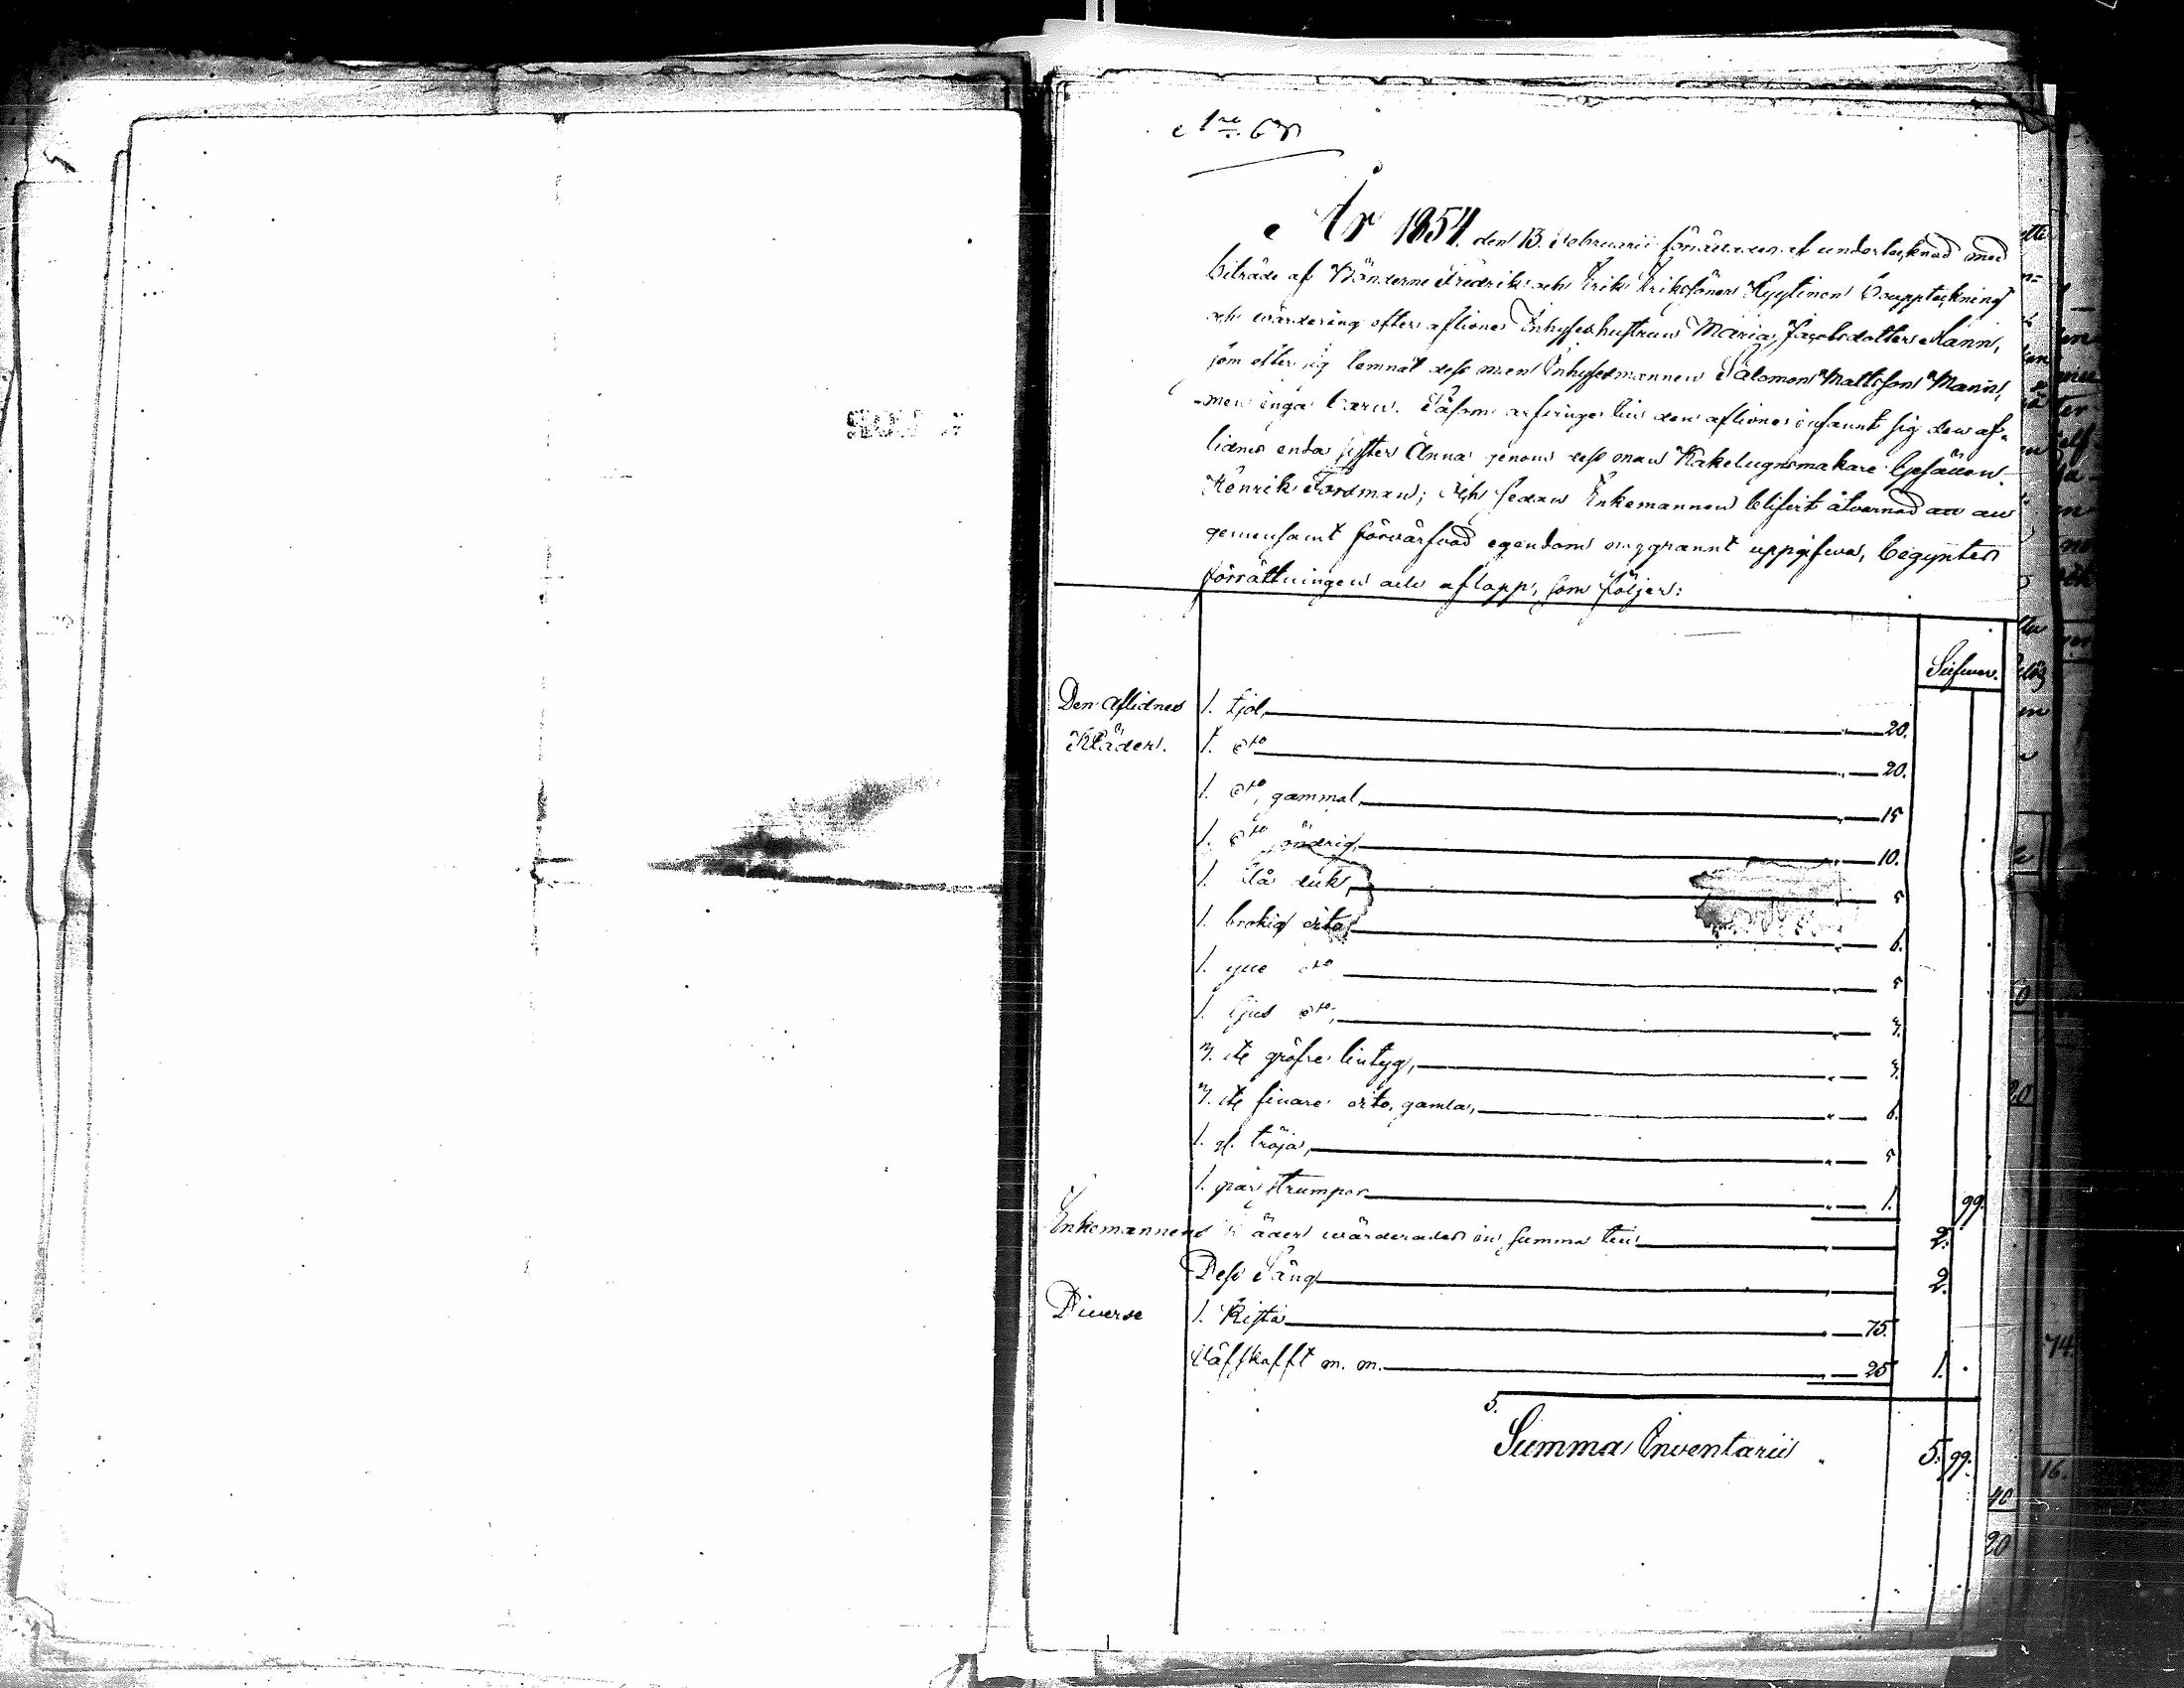 År 1854 den 13 Februarii förrättades af undertecknad med
biträde af Bönderne Fredrik och Erik Eriksöner Hyytinen Bouppteckning
och wärdering efter aflidne Inhyseshustrun Maria Jacobsdotter Mann,
som efter sig lemnat dess man Inhysesmannen Salomon Mattsson Mann,
men inga barn. Såsom arfvingar till den aflidne infannt sig den af-
lidnes enda syster Anna genom dess man Kakelugnsmakare Gesällen
Henrik Fordman; och sedan Enkemannen blifvit åtvarnad att all
gemensamt förvärfvad egendom noggrannt uppgifva, begyntes
förrättningen och aflopp, som följer:
Silfver.
Den Aflidnes 1. Kjol, " 20.
Kläder. 1. dto " 20.
1. dto, gammal, " 15
1. dto söndrig, " 10.
1. blå duk, " 5
1. brokig dito, " 6.
1. gul dto " 5
1. ljus dto, " 3.
3. st gröfre lintyg, " 3.
3. st finare dito, gamla, " 6.
1. gl. tröja, " 5
1. par strumpor " 1. 99.
Enkemannens Kläder wärderades in summa till 2.
Dess Säng 2.
Diverse 1. Kista " 75.
Wäfskafft m. m. " 25 1.
S.
Summa Inventarii 5. 99.